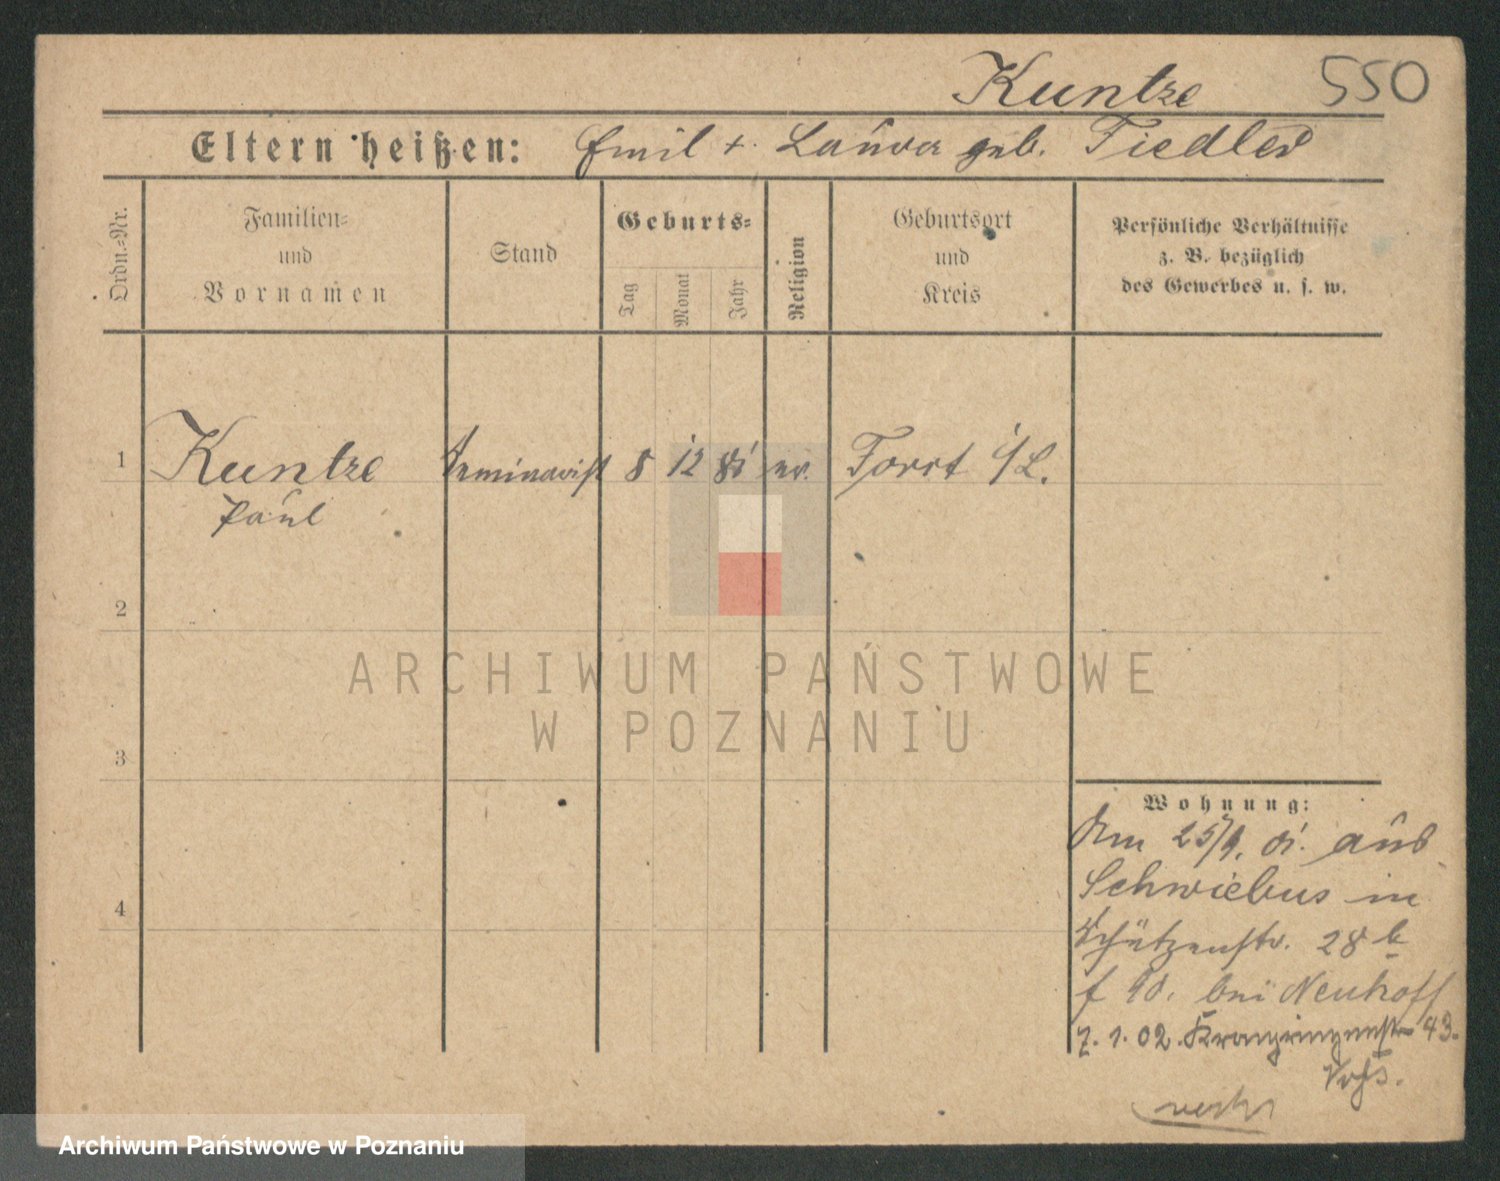 Kuntze 550
Eltern heißen: Emil + Laura geb. Fiedler
Ordn.-Nr.
Familien-
und
Vornamen
Stand
Geburts-
Tag
Monat
Jahr
Religion
Geburtsort
und
Kreis
Persönliche Verhältnisse
z. B. bezüglich
des Gewerbes u. s. w.
1 Kuntze Seminarist 8 12 81 ev. Forst i/L.
Paul
2
3
4
Wohnung:
Am 25/9. 01. aus
Schwiebus in
Schützenstr. 28 b
bei Neuhoff
7. 1. 02. 43.
Voß.
ARCHIWUM PAŃSTWOWE
W POZNANIU
Archiwum Państwowe w Poznaniu